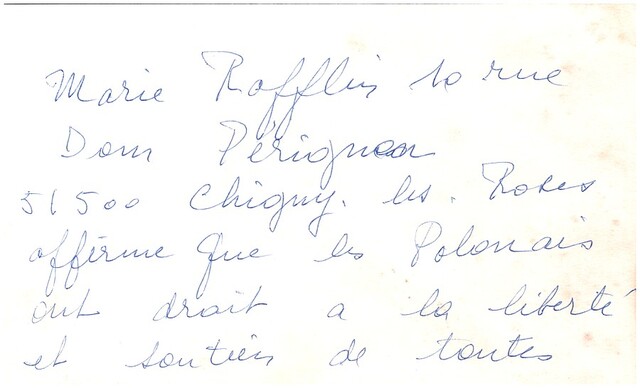 Marie Rafflin 10 rue
Dom Pérignon
51500 Chigny. les. Roses
affirme que les Polonais
ont droit a la liberté
et soutien de toutes